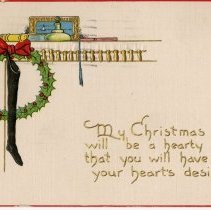 My Christmas
will be a hearty
that you will have
your heart's desi